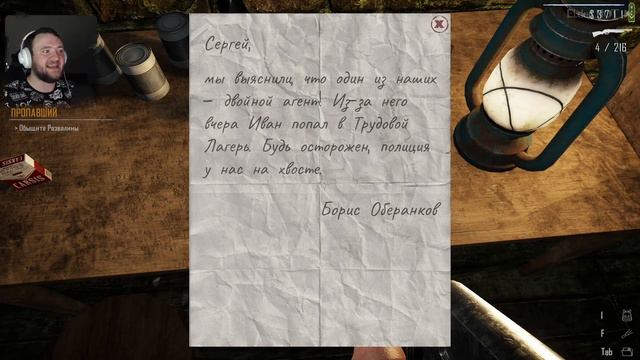 Сергей,
мы выяснили, что один из наших
– двойной агент! Из-за него
вчера Иван попал в Трудовой
Лагерь. Будь осторожен, полиция
у нас на хвосте.
Борис Оберанков
ПРОПАВШИЙ
> Обыщите Развалины
4 / 216
I
F
Tab